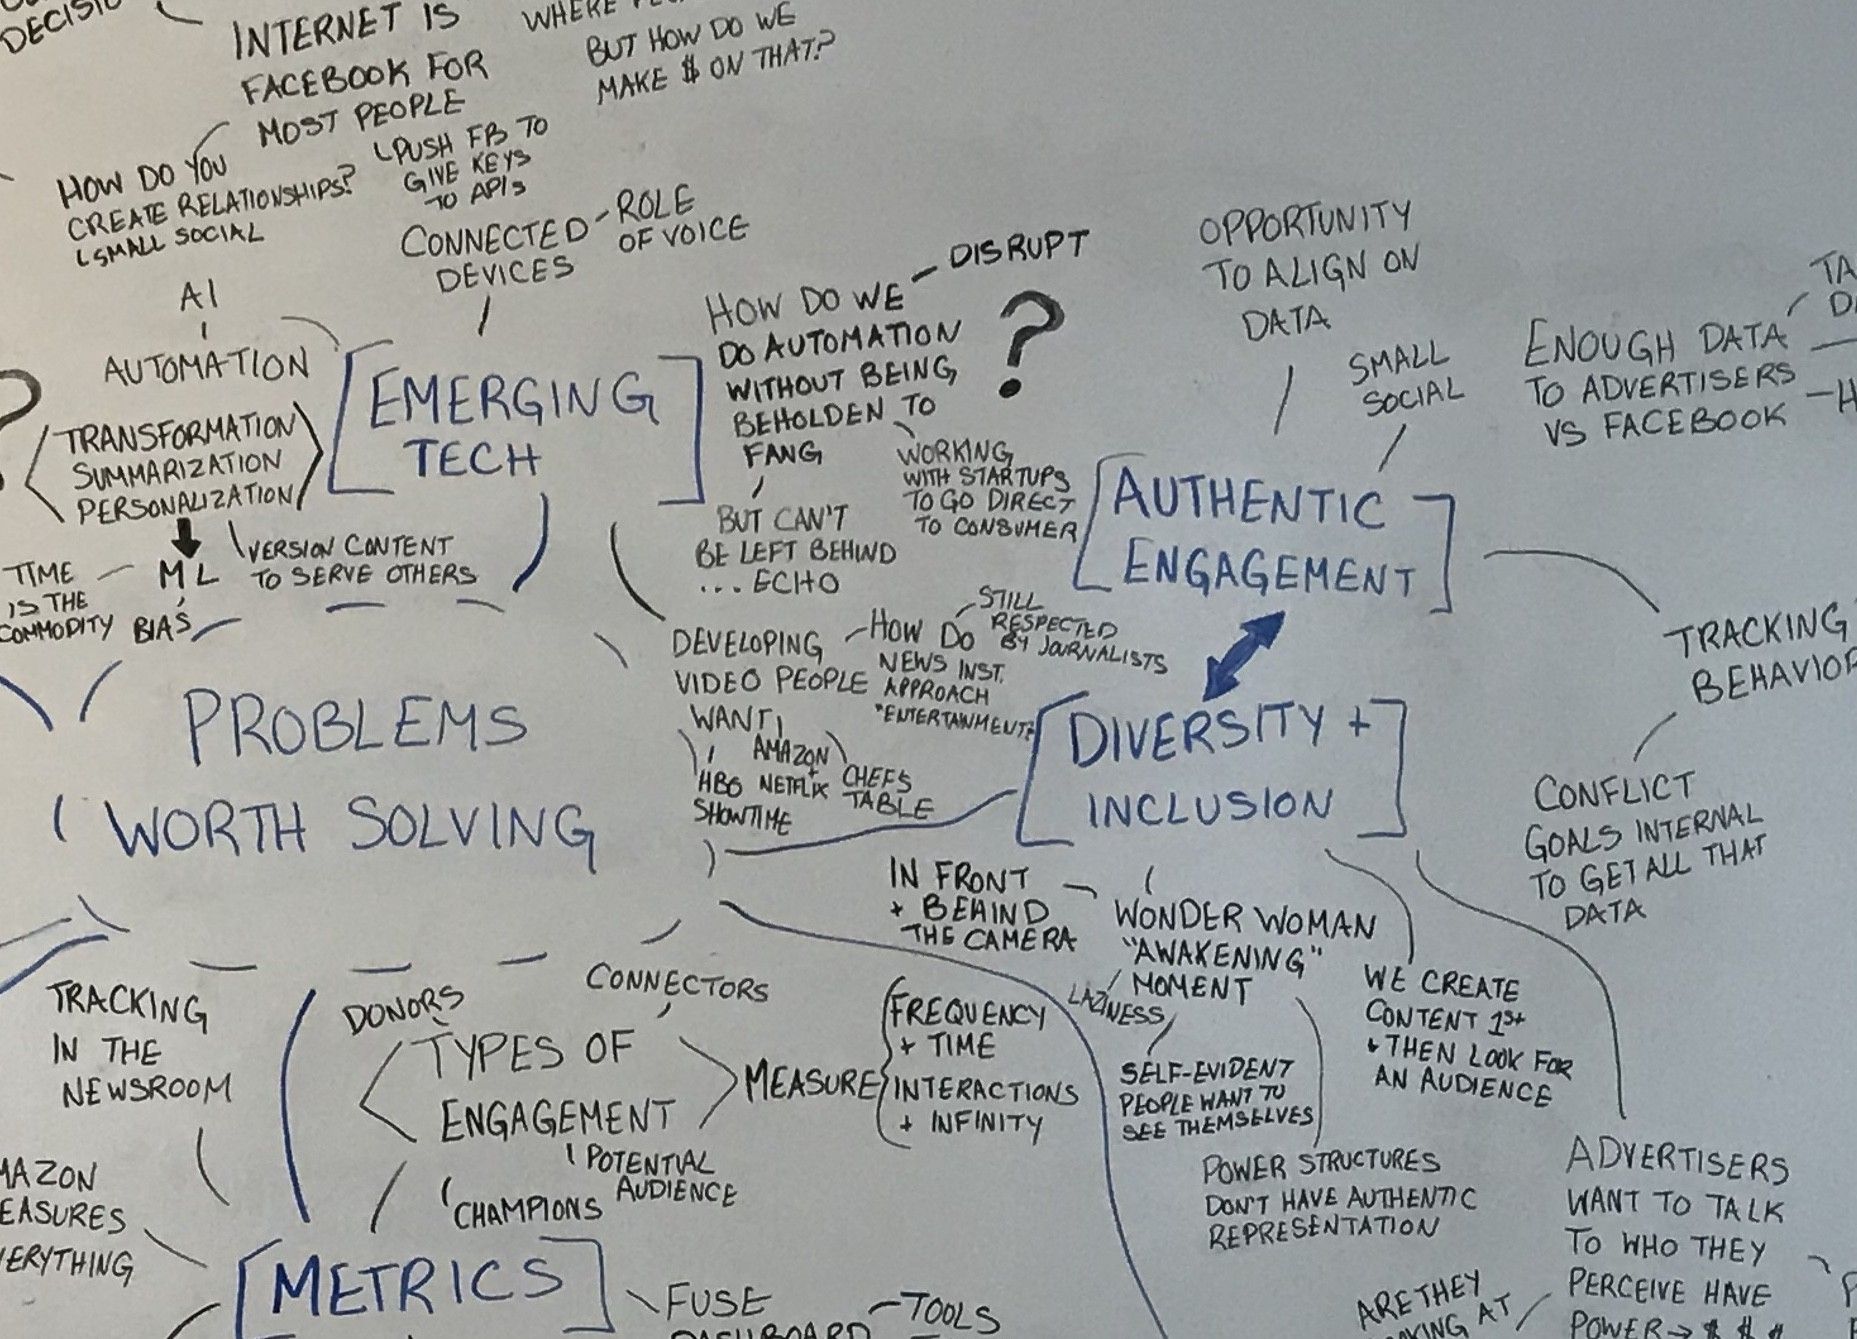 INTERNET IS
FACEBOOK FOR
MOST PEOPLE
WHERE
BUT HOW DO WE
MAKE $ ON THAT?
HOW DO YOU
CREATE RELATIONSHIPS?
SMALL SOCIAL
PUSH FB TO
GIVE KEYS
TO APIs
CONNECTED
DEVICES
ROLE
OF VOICE
AI
AUTOMATION
TRANSFORMATION
SUMMARIZATION
PERSONALIZATION
ML
VERSION CONTENT
TO SERVE OTHERS
TIME
IS THE
COMMODITY
BIAS
[EMERGING
TECH]
HOW DO WE
DO AUTOMATION
WITHOUT BEING
BEHOLDEN TO
FANG
?
DISRUPT
WORKING
WITH STARTUPS
TO GO DIRECT
TO CONSUMER
BUT CAN'T
BE LEFT BEHIND
... ECHO
OPPORTUNITY
TO ALIGN ON
DATA
SMALL
SOCIAL
ENOUGH DATA
TO ADVERTISERS
VS FACEBOOK
[AUTHENTIC
ENGAGEMENT]
TRACKING
BEHAVIOR
CONFLICT
GOALS INTERNAL
TO GET ALL THAT
DATA
DEVELOPING
VIDEO PEOPLE
WANT
HOW DO
NEWS INST.
APPROACH
"ENTERTAINMENT?
STILL
RESPECTED
BY JOURNALISTS
AMAZON
+
HBO NETFLIX
SHOWTIME
CHEFS
TABLE
PROBLEMS
WORTH SOLVING
[DIVERSITY +
INCLUSION]
IN FRONT
+ BEHIND
THE CAMERA
WONDER WOMAN
"AWAKENING"
MOMENT
LAZINESS
SELF-EVIDENT
PEOPLE WANT TO
SEE THEMSELVES
POWER STRUCTURES
DON'T HAVE AUTHENTIC
REPRESENTATION
WE CREATE
CONTENT 1st
+ THEN LOOK FOR
AN AUDIENCE
ADVERTISERS
WANT TO TALK
TO WHO THEY
PERCEIVE HAVE
POWER → $ $ $
ARE THEY
AT
TRACKING
IN THE
NEWSROOM
DONORS
CONNECTORS
TYPES OF
ENGAGEMENT
POTENTIAL
AUDIENCE
CHAMPIONS
MEASURE
FREQUENCY
+ TIME
INTERACTIONS
+ INFINITY
[METRICS]
FUSE
TOOLS